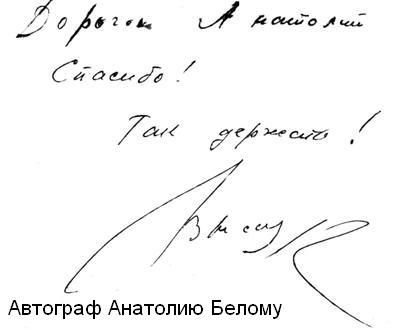 Дорогой Анатолий
Спасибо!
Так держать!
Автограф Анатолию Белому